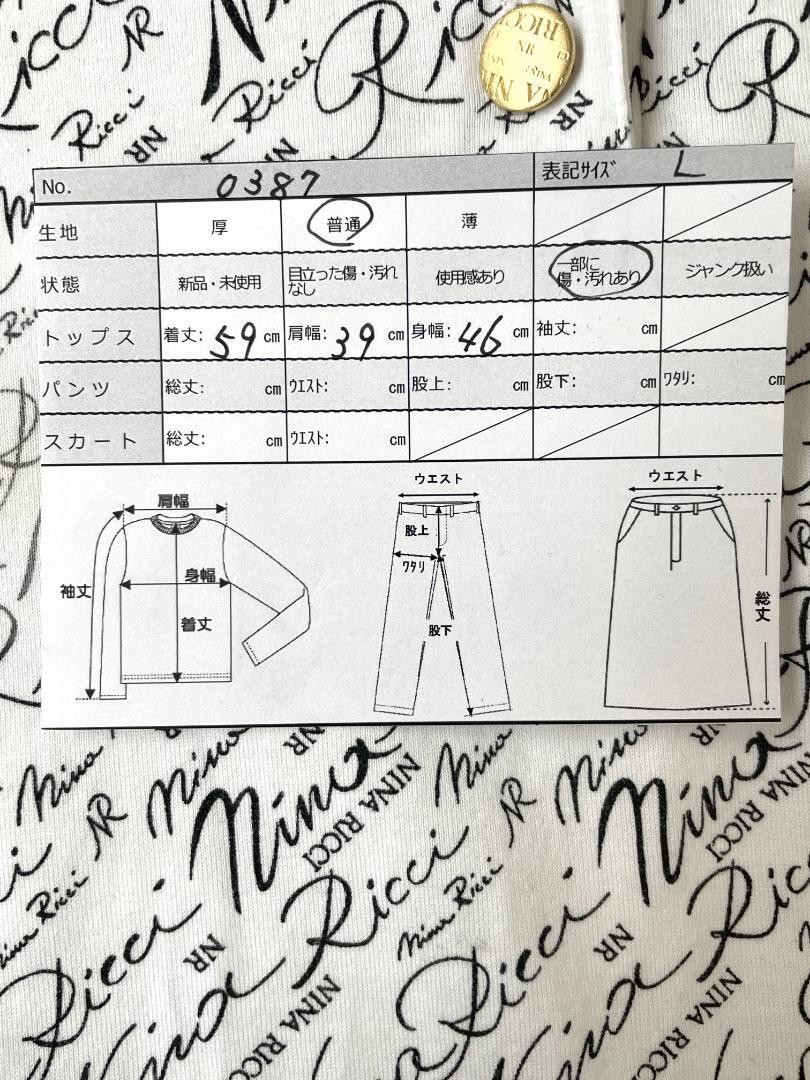 Ricci
NR
Ricci
RICCI
NR
NINA
NINA NI
Ricci
NR
Ricci
NR
No. 0387 表記サイズ L
生地 厚 普通 薄
状態 新品・未使用 目立った傷・汚れなし 使用感あり 一部に傷・汚れあり ジャンク扱い
トップス 着丈: 59 cm 肩幅: 39 cm 身幅: 46 cm 袖丈: cm
パンツ 総丈: cm ウエスト: cm 股上: cm 股下: cm ワタリ: cm
スカート 総丈: cm ウエスト: cm
肩幅
袖丈
身幅
着丈
ウエスト
股上
ワタリ
股下
ウエスト
総丈
Nina
NR
Nina
NR
Nina
NINA RICCI
Nina
NR
Nina
Nina
NINA RICCI
Nina Ricci
Ricci
NR
Nina Ricci
NINA RICCI
Nina Ricci
Ricci
NR
Ricci
NINA RICCI
Nina